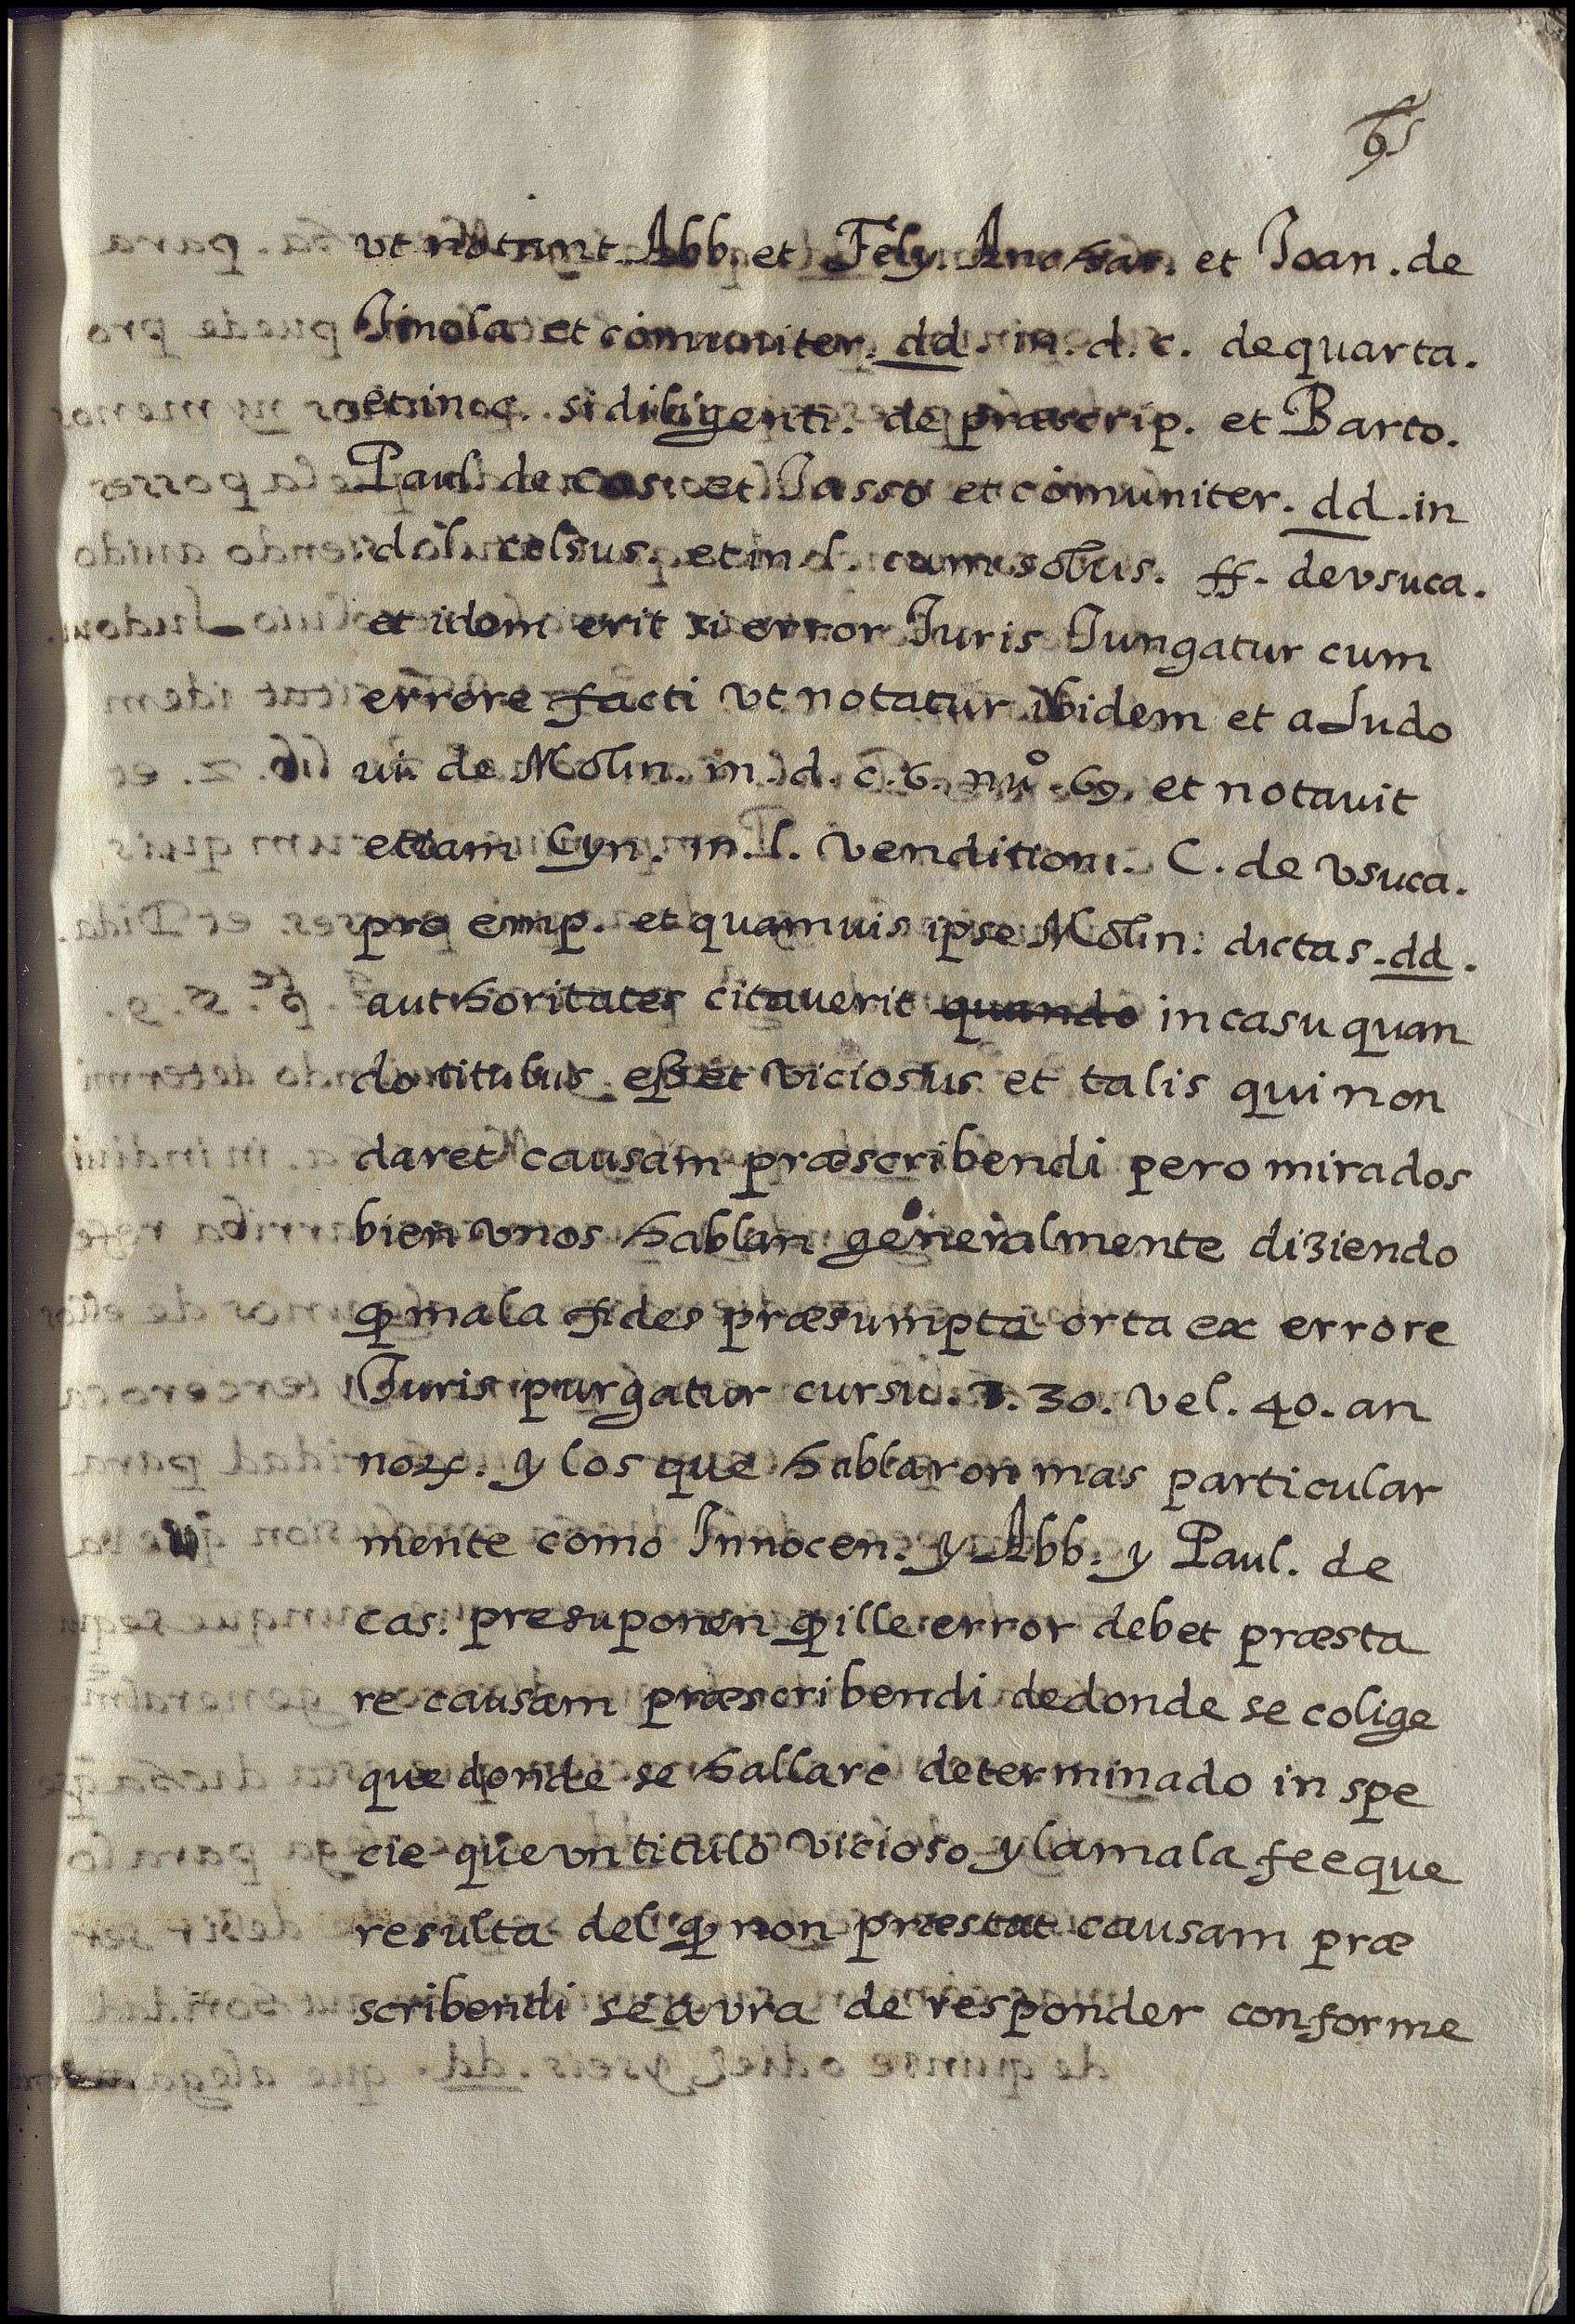 65
vt notant. Abb. et Fely. Anchar. et Joan. de
Jmola et cómuniter. dd. in. d. c. de quarta.
et in. c. si diligenti. de præscrip. et Barto.
Paul. de cas. et Jasso et cómuniter. dd. in
d. l. celsus. et in l. cum solus. ff. de vsuca.
et idem erit si error Juris Jungatur cum
errore facti vt notatur ibidem et a Ludo
ui. de Molin. in. d. c. 6. nuº. 69. et notauit
etiam Cyn. in. l. venditioni. C. de vsuca.
pro emp. et quamuis ipse Molin. dictas. dd.
authoritates citauerit quando in casu quan
do titulus esset viciosus et talis qui non
daret causam præscribendi pero mirados
bien vnos hablan generalmente diziendo
ꝙ mala fides præsumpta orta ex errore
Juris purgatur cursu. 30. vel. 40. an
noꝝ. y los que hablaron mas particular
mente como Jnnocen. y Abb. y Paul. de
cas. presuponen ꝙ ille error debet præsta
re causam præscribendi de donde se colige
que donde se hallare determinado in spe
cie que vn titulo vicioso y la mala fee que
resulta del ꝙ non præstat causam præ
scribendi se avra de responder conforme